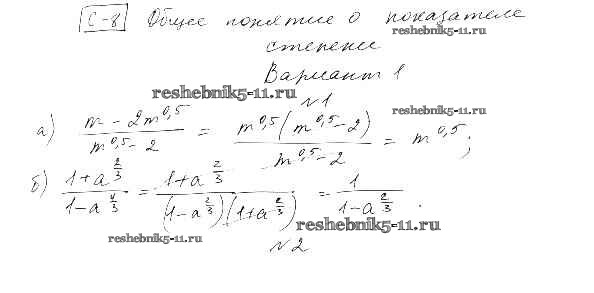 С-8 Общее понятие о показателе
reshebnik5-11.ru
степени
Вариант 1
reshebnik5-11.ru
№1
reshebnik5-11.ru
а) (m - 2m^0,5)/(m^0,5 - 2) = (m^0,5(m^0,5 - 2))/(m^0,5 - 2) = m^0,5;
б) (1+a^(2/3))/(1-a^(4/3)) = (1+a^(2/3))/((1-a^(2/3))(1+a^(2/3))) = 1/(1-a^(2/3)).
reshebnik5-11.ru
reshebnik5-11.ru
№2